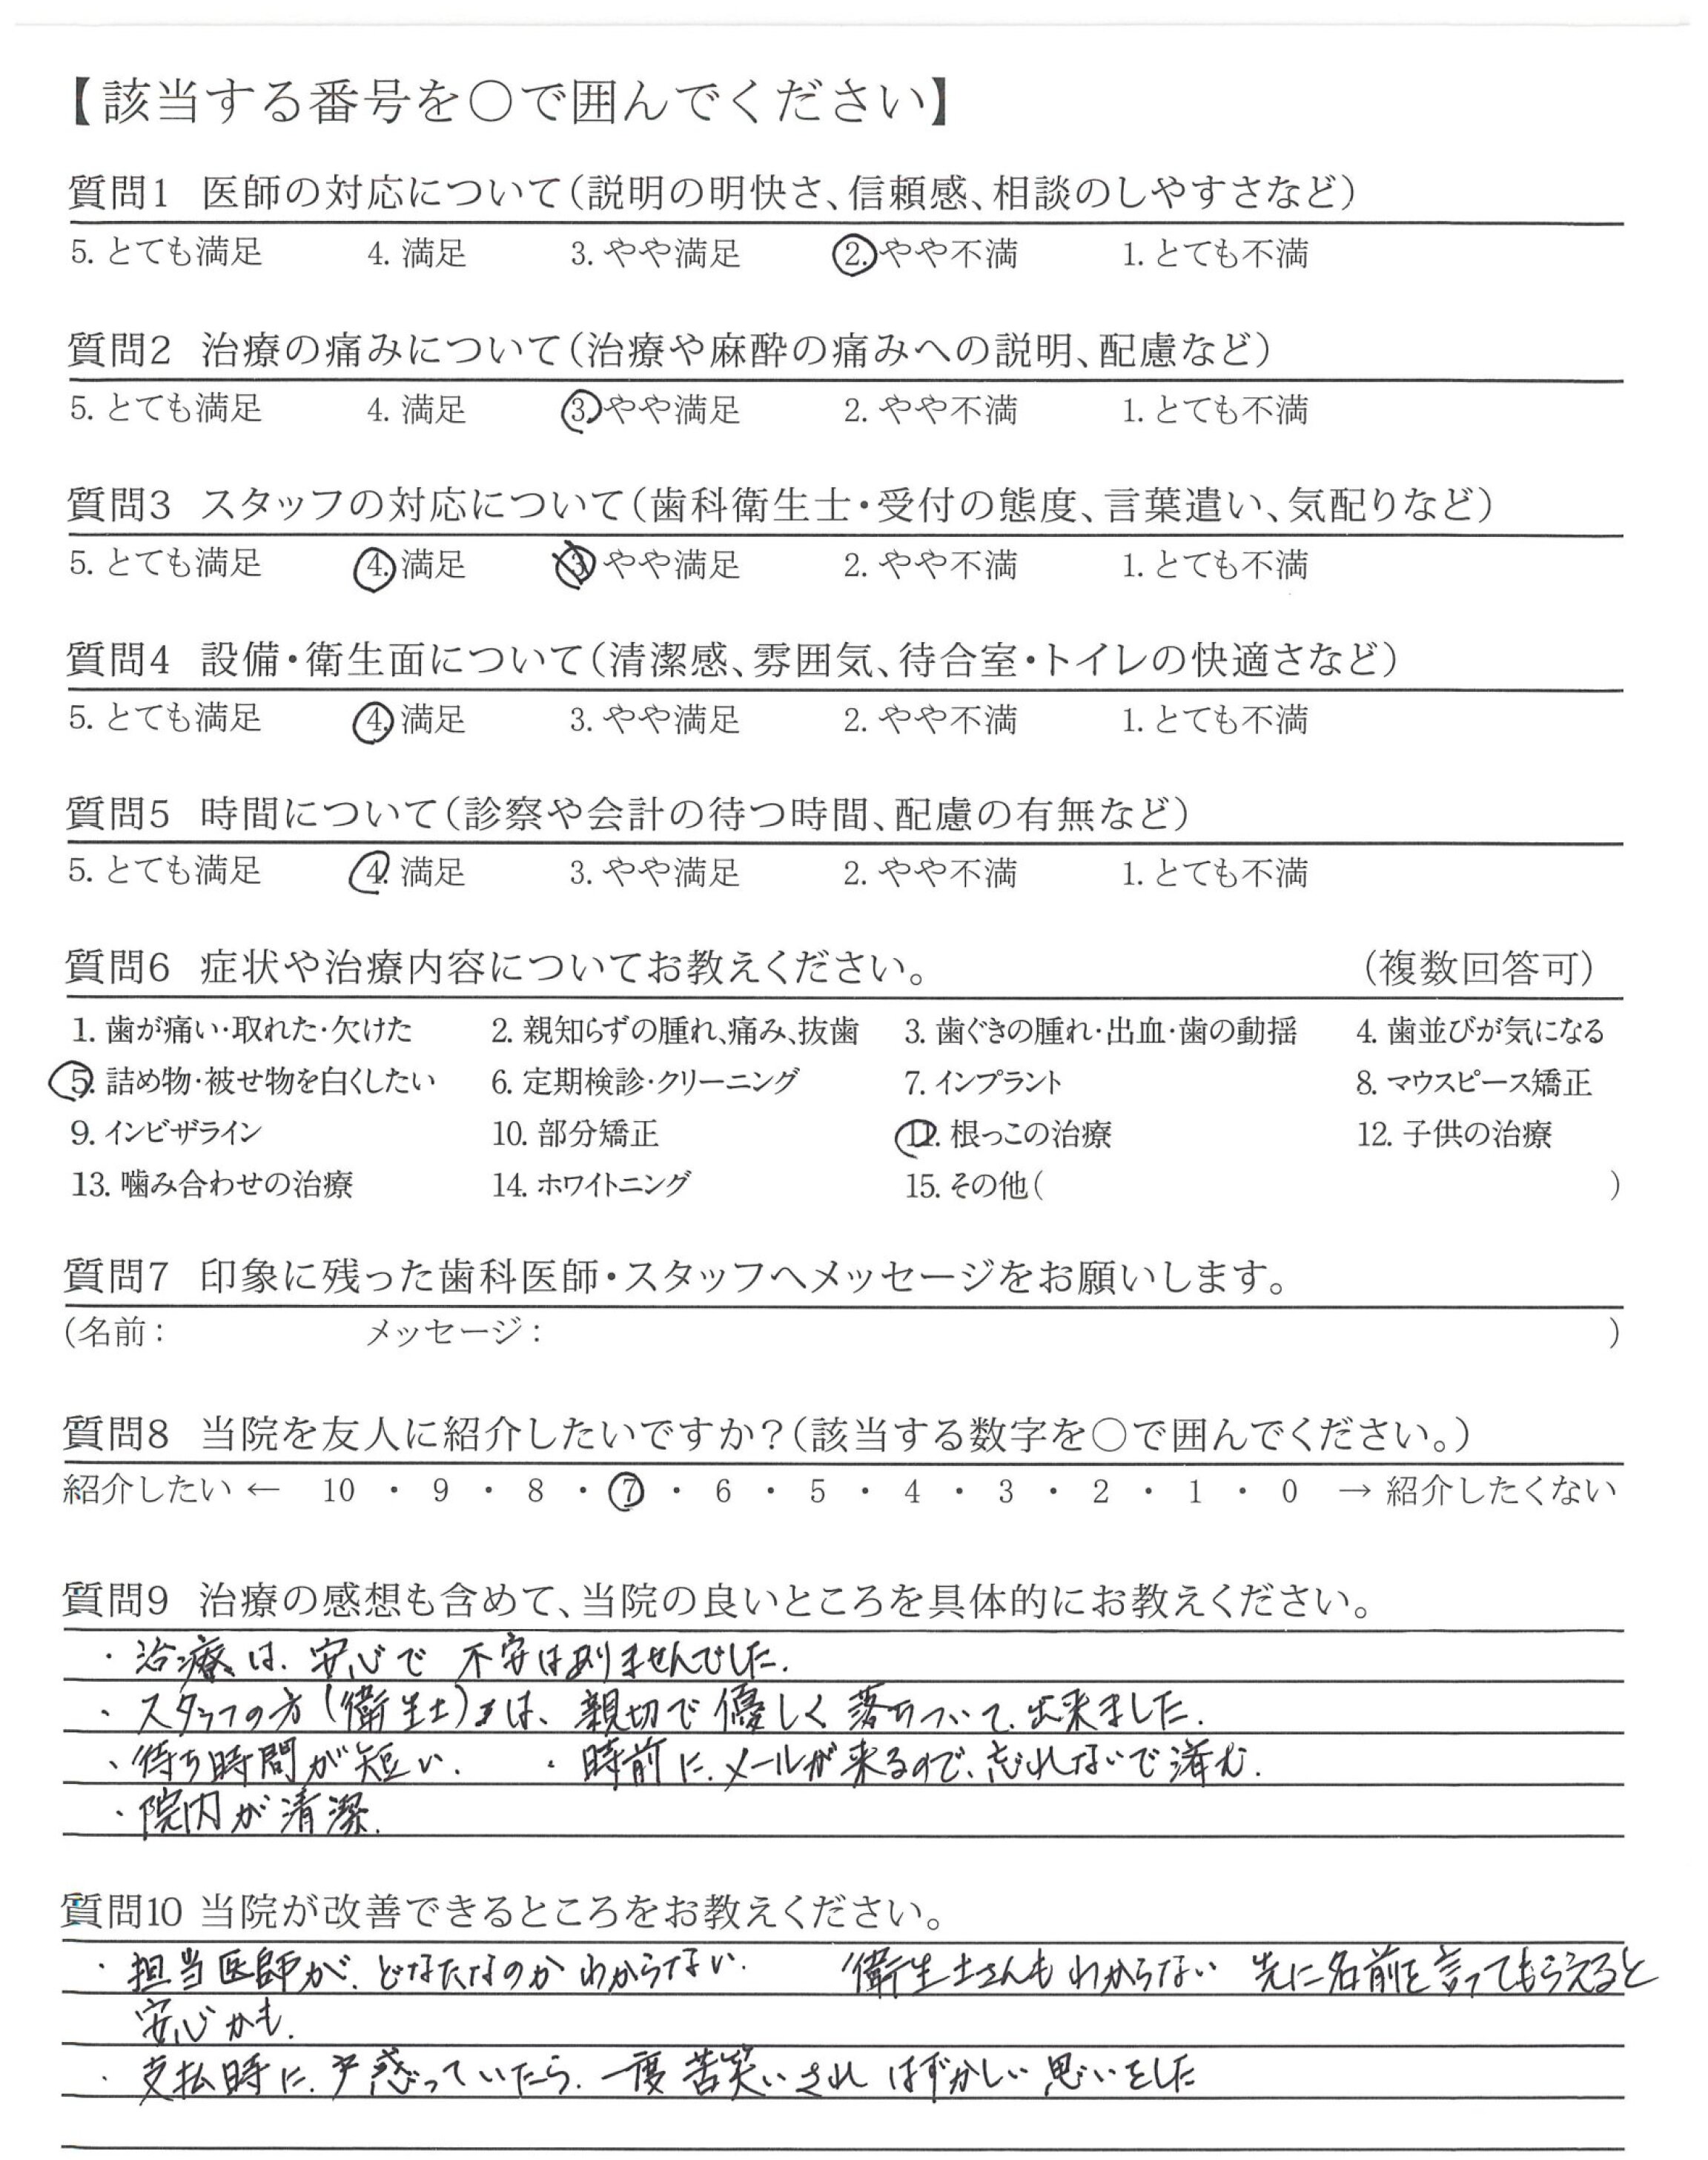 【該当する番号を〇で囲んでください】
質問1 医師の対応について(説明の明快さ、信頼感、相談のしやすさなど)
5. とても満足 4. 満足 3. やや満足 2. やや不満 1. とても不満
質問2 治療の痛みについて(治療や麻酔の痛みへの説明、配慮など)
5. とても満足 4. 満足 3. やや満足 2. やや不満 1. とても不満
質問3 スタッフの対応について(歯科衛生士・受付の態度、言葉遣い、気配りなど)
5. とても満足 4. 満足 3 やや満足 2. やや不満 1. とても不満
質問4 設備・衛生面について(清潔感、雰囲気、待合室・トイレの快適さなど)
5. とても満足 4. 満足 3. やや満足 2. やや不満 1. とても不満
質問5 時間について(診察や会計の待つ時間、配慮の有無など)
5. とても満足 4. 満足 3. やや満足 2. やや不満 1. とても不満
質問6 症状や治療内容についてお教えください。 (複数回答可)
1. 歯が痛い・取れた・欠けた 2. 親知らずの腫れ、痛み、抜歯 3. 歯ぐきの腫れ・出血・歯の動揺 4. 歯並びが気になる
5. 詰め物・被せ物を白くしたい 6. 定期検診・クリーニング 7. インプラント 8. マウスピース矯正
9. インビザライン 10. 部分矯正 11. 根っこの治療 12. 子供の治療
13. 噛み合わせの治療 14. ホワイトニング 15. その他( )
質問7 印象に残った歯科医師・スタッフへメッセージをお願いします。
(名前: メッセージ: )
質問8 当院を友人に紹介したいですか?(該当する数字を〇で囲んでください。)
紹介したい ← 10 ・ 9 ・ 8 ・ 7 ・ 6 ・ 5 ・ 4 ・ 3 ・ 2 ・ 1 ・ 0 → 紹介したくない
質問9 治療の感想も含めて、当院の良いところを具体的にお教えください。
・治療は、安心で 不安はありませんでした.
・スタッフの方(衛生士)は、親切で優しく落ちついて、出来ました.
・待ち時間が短い. ・時前に、メールが来るので、忘れないで済む.
・院内が清潔.
質問10 当院が改善できるところをお教えください。
・担当医師が、どなたなのかわからない. 衛生士さんもわからない 先に名前を言ってもらえると
安心かも.
・支払時に、戸惑っていたら、一度苦笑いされ はずかしい思いをした